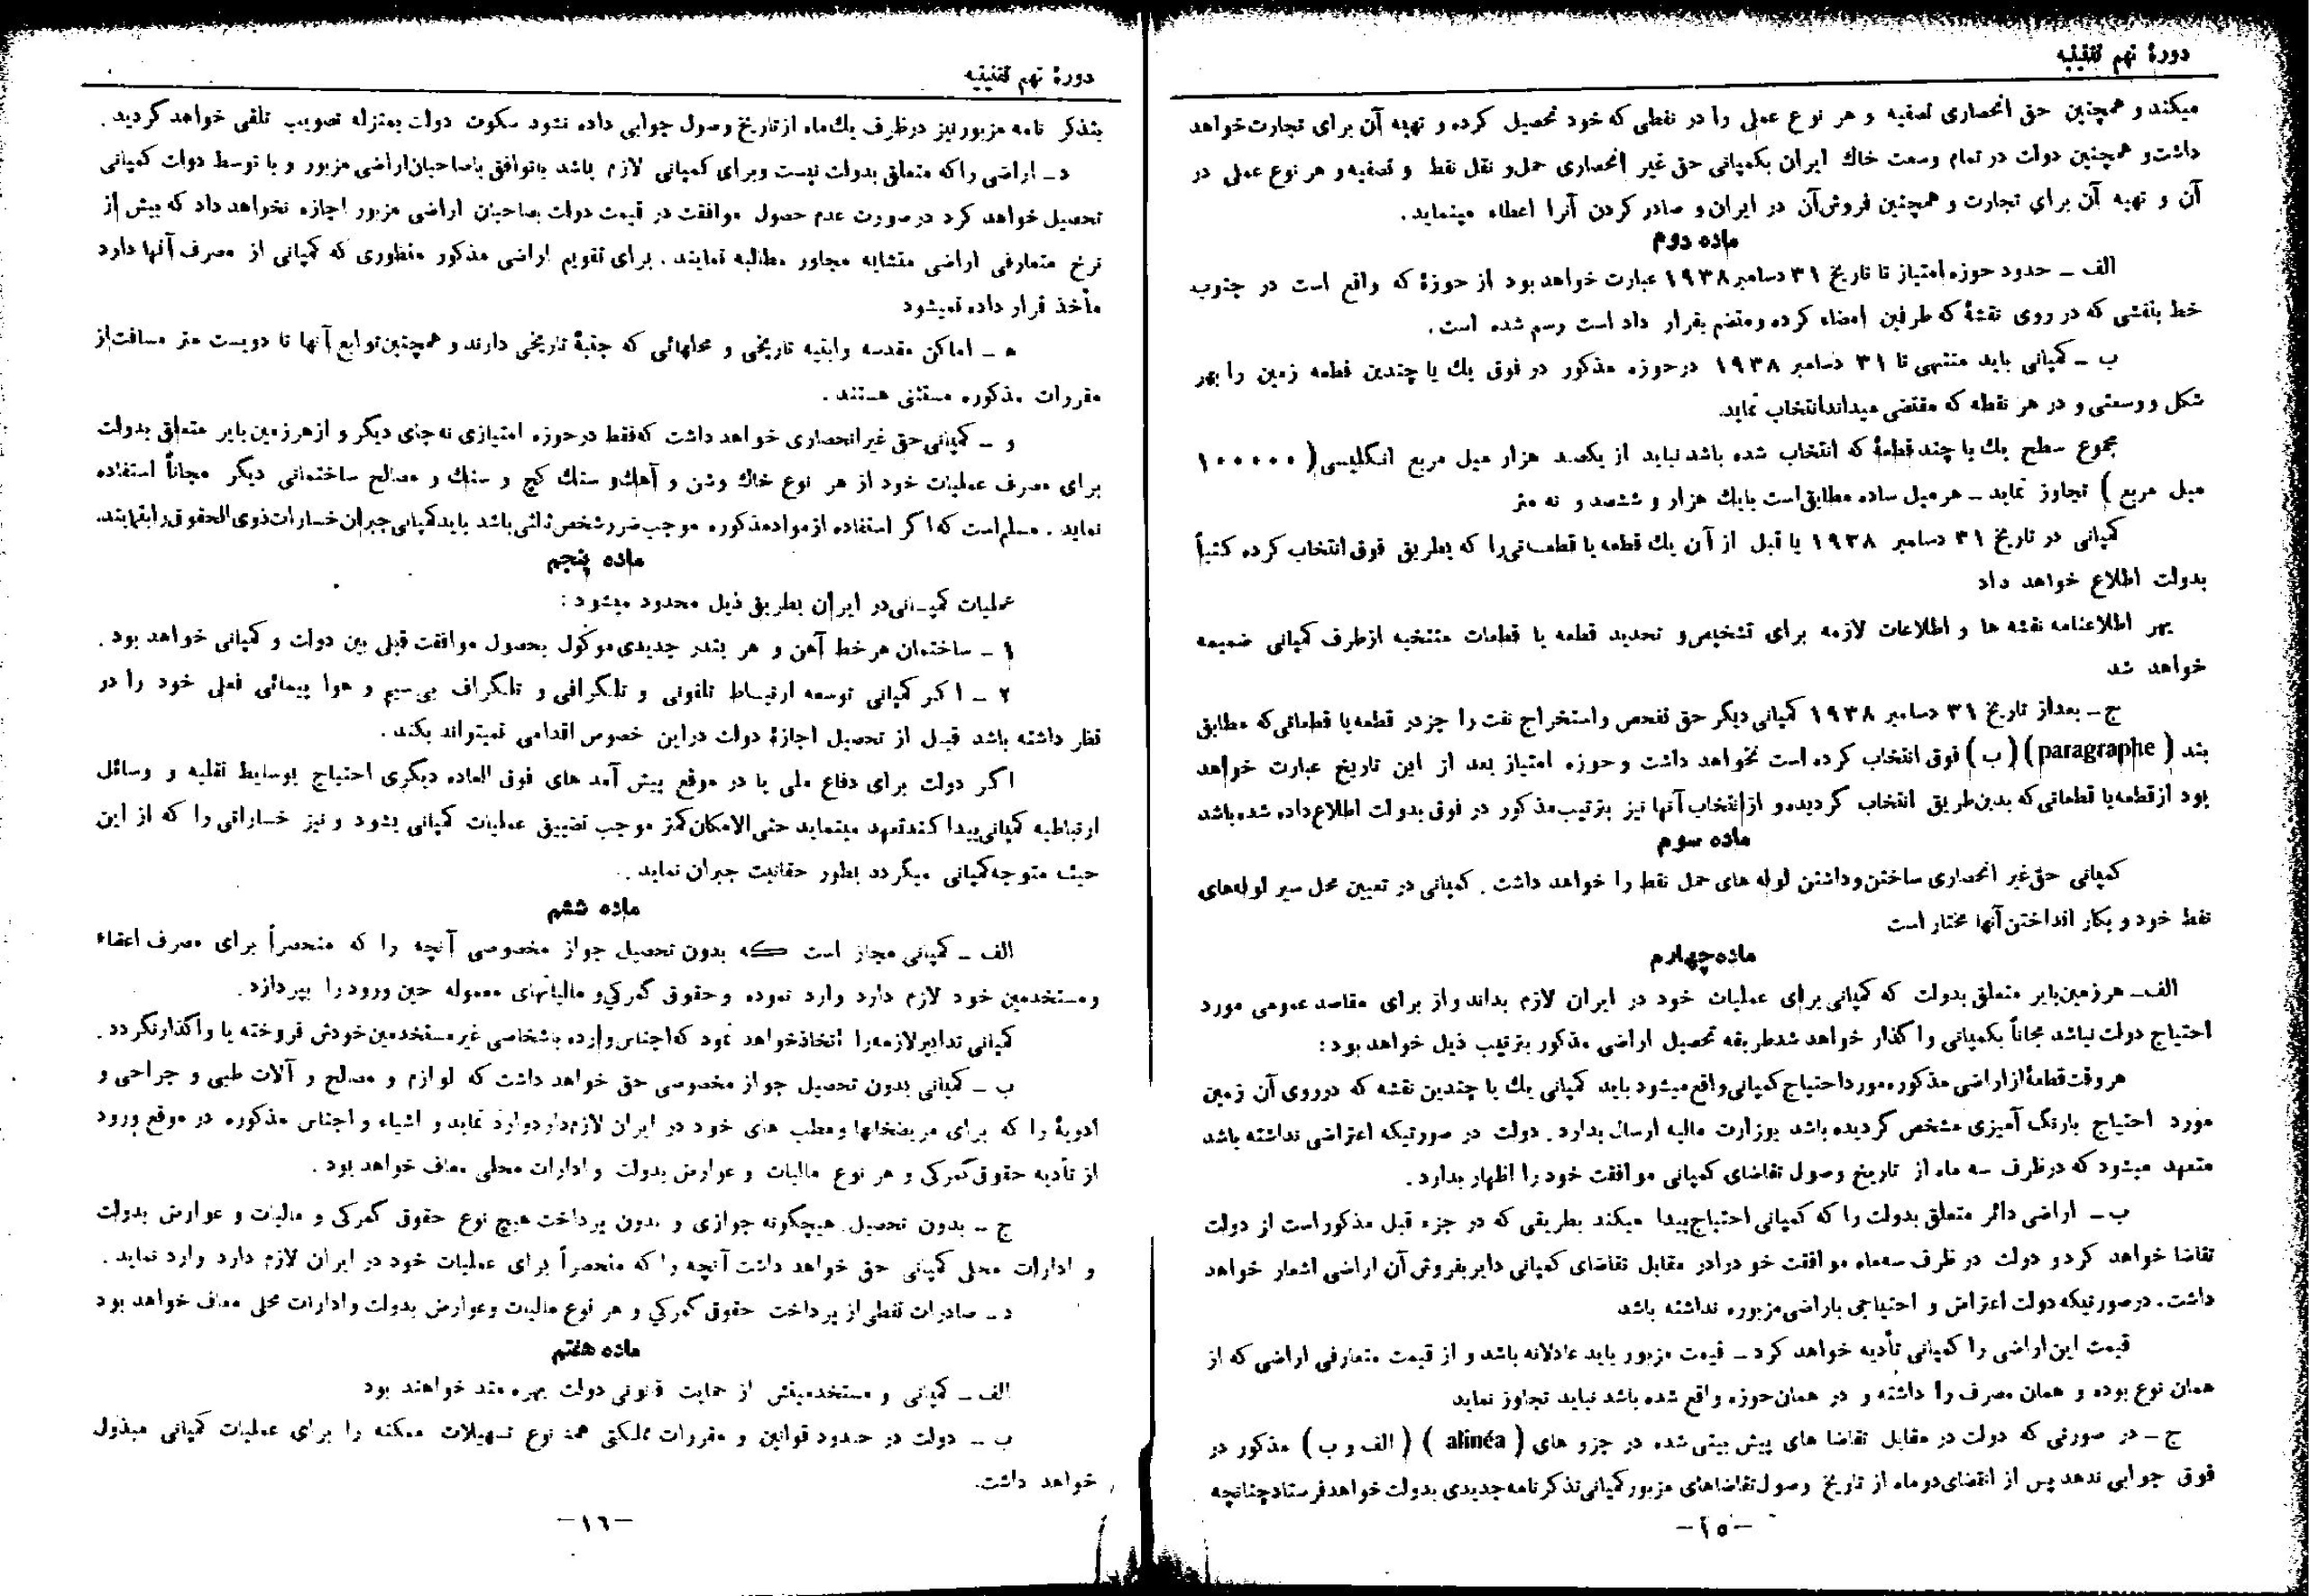 دورهٔ نهم تقنینیه
میکند و همچنین حق انحصاری تصفیه و هر نوع عملی را در نفطی که خود تحصیل کرده و تهیه آن برای تجارت خواهد
داشت و همچنین دولت در تمام وسعت خاك ایران بکمپانی حق غیر انحصاری حمل و نقل نفط و تصفیه و هر نوع عملی در
آن و تهیه آن برای تجارت و همچنین فروش آن در ایران و صادر کردن آنرا اعطاء مینماید.
ماده دوم
الف ـ حدود حوزه امتیاز تا تاریخ ۳۱ دسامبر ۱۹۳۸ عبارت خواهد بود از حوزهٔ که واقع است در جنوب
خط بنفشی که در روی نقشهٔ که طرفین امضاء کرده و منضم بقرار داد است رسم شده است.
ب ـ کمپانی باید منتهی تا ۳۱ دسامبر ۱۹۳۸ در حوزه مذکور در فوق یك یا چندین قطعه زمین را بهر
شکل و وسعتی و در هر نقطه که مقتضی میداند انتخاب نماید.
مجموع سطح یك یا چند قطعهٔ که انتخاب شده باشد نباید از یکصد هزار میل مربع انگلیسی ( ۱۰۰۰۰۰
میل مربع ) تجاوز نماید ـ هر میل ساده مطابق است با یك هزار و ششصد و نه متر
کمپانی در تاریخ ۳۱ دسامبر ۱۹۳۸ یا قبل از آن یك قطعه یا قطعاتی را که بطریق فوق انتخاب کرده کتباً
بدولت اطلاع خواهد داد
بهر اطلاعنامه نقشه ها و اطلاعات لازمه برای تشخیص و تحدید قطعه یا قطعات منتخبه از طرف کمپانی ضمیمه
خواهد شد
ج ـ بعد از تاریخ ۳۱ دسامبر ۱۹۳۸ کمپانی دیگر حق تفحص و استخراج نفت را جز در قطعه یا قطعاتی که مطابق
بند ( paragraphe ) ( ب ) فوق انتخاب کرده است نخواهد داشت و حوزه امتیاز بعد از این تاریخ عبارت خواهد
بود از قطعه یا قطعاتی که بدین طریق انتخاب گردیده و از انتخاب آنها نیز بترتیب مذکور در فوق بدولت اطلاع داده شده باشد
ماده سوم
کمپانی حق غیر انحصاری ساختن و داشتن لوله های حمل نفط را خواهد داشت . کمپانی در تعیین محل سیر لوله‌های
نفط خود و بکار انداختن آنها مختار است
ماده چهارم
الف ـ هر زمین بایر متعلق بدولت که کمپانی برای عملیات خود در ایران لازم بداند و از برای مقاصد عمومی مورد
احتیاج دولت نباشد مجاناً بکمپانی واگذار خواهد شد طریقه تحصیل اراضی مذکور بترتیب ذیل خواهد بود:
هر وقت قطعهٔ از اراضی مذکوره مورد احتیاج کمپانی واقع میشود باید کمپانی یك یا چندین نقشه که در روی آن زمین
مورد احتیاج بارنگ آمیزی مشخص گردیده باشد بوزارت مالیه ارسال بدارد. دولت در صورتیکه اعتراضی نداشته باشد
متعهد میشود که در ظرف سه ماه از تاریخ وصول تقاضای کمپانی موافقت خود را اظهار بدارد.
ب ـ اراضی دائر متعلق بدولت را که کمپانی احتیاج پیدا میکند بطریقی که در جزء قبل مذکور است از دولت
تقاضا خواهد کرد و دولت در ظرف سه ماه موافقت خود را در مقابل تقاضای کمپانی دایر بفروش آن اراضی اشعار خواهد
داشت. در صورتیکه دولت اعتراض و احتیاجی باراضی مزبوره نداشته باشد
قیمت این اراضی را کمپانی تأدیه خواهد کرد ـ قیمت مزبور باید عادلانه باشد و از قیمت متعارفی اراضی که از
همان نوع بوده و همان مصرف را داشته و در همان حوزه واقع شده باشد نباید تجاوز نماید
ج ـ در صورتی که دولت در مقابل تقاضا های پیش بینی شده در جزو های ( alinéa ) ( الف و ب ) مذکور در
فوق جوابی ندهد پس از انقضای دو ماه از تاریخ وصول تقاضاهای مزبور کمپانی تذکر نامه جدیدی بدولت خواهد فرستاد چنانچه
ـ۱۵ـ
دورهٔ نهم تقنینیه
بتذکر نامه مزبور نیز در ظرف یك ماه از تاریخ وصول جوابی داده نشود سکوت دولت بمنزله تصویب تلقی خواهد گردید.
د ـ اراضی را که متعلق بدولت نیست و برای کمپانی لازم باشد با توافق با صاحبان اراضی مزبور و با توسط دولت کمپانی
تحصیل خواهد کرد در صورت عدم حصول موافقت در قیمت دولت بصاحبان اراضی مزبور اجازه نخواهد داد که بیش از
نرخ متعارفی اراضی متشابه مجاور مطالبه نمایند. برای تقویم اراضی مذکور منظوری که کمپانی از مصرف آنها دارد
مأخذ قرار داده نمیشود
ه ـ اماکن مقدسه و ابنیه تاریخی و محلهائی که جنبهٔ تاریخی دارند و همچنین توابع آنها تا دویست متر مسافت از
مقررات مذکوره مستثنی هستند .
و ـ کمپانی حق غیر انحصاری خواهد داشت که فقط در حوزه امتیازی نه جای دیگر و از هر زمین بایر متعلق بدولت
برای مصرف عملیات خود از هر نوع خاك و شن و آهك و سنك گچ و سنك و مصالح ساختمانی دیگر مجاناً استفاده
نماید . مسلم است که اگر استفاده از مواد مذکوره موجب ضرر شخص ثالثی باشد باید کمپانی جبران خسارات ذوی الحقوق را بنماید.
ماده پنجم
عملیات کمپانی در ایران بطریق ذیل محدود میشود :
۱ ـ ساختمان هر خط آهن و هر بندر جدیدی موکول بحصول موافقت قبلی بین دولت و کمپانی خواهد بود.
۲ ـ اگر کمپانی توسعه ارتباط تلفونی و تلگرافی و تلگراف بی سیم و هوا پیمائی فعلی خود را در
نظر داشته باشد قبل از تحصیل اجازهٔ دولت در این خصوص اقدامی نمیتواند بکند.
اگر دولت برای دفاع ملی یا در موقع پیش آمد های فوق العاده دیگری احتیاج بوسایط نقلیه و وسائل
ارتباطیه کمپانی پیدا کند تعهد مینماید حتی الامکان کمتر موجب تضییق عملیات کمپانی بشود و نیز خساراتی را که از این
حیث متوجه کمپانی میگردد بطور حقانیت جبران نماید.
ماده ششم
الف ـ کمپانی مجاز است که بدون تحصیل جواز مخصوصی آنچه را که منحصراً برای مصرف اعضاء
و مستخدمین خود لازم دارد وارد نموده و حقوق گمرکی و مالیاتهای معموله حین ورود را بپردازد.
کمپانی تدابیر لازمه را اتخاذ خواهد نمود که اجناس وارده باشخاصی غیر مستخدمین خودش فروخته یا واگذار نگردد.
ب ـ کمپانی بدون تحصیل جواز مخصوصی حق خواهد داشت که لوازم و مصالح و آلات طبی و جراحی و
ادویهٔ را که برای مریضخانها و مطب های خود در ایران لازم دارد وارد نماید و اشیاء و اجناس مذکوره در موقع ورود
از تأدیه حقوق گمرکی و هر نوع مالیات و عوارض بدولت و ادارات محلی معاف خواهد بود.
ج ـ بدون تحصیل هیچگونه جوازی و بدون پرداخت هیچ نوع حقوق گمرکی و مالیات و عوارض بدولت
و ادارات محلی کمپانی حق خواهد داشت آنچه را که منحصراً برای عملیات خود در ایران لازم دارد وارد نماید.
د ـ صادرات نفطی از پرداخت حقوق گمرکی و هر نوع مالیات و عوارض بدولت و ادارات محلی معاف خواهد بود
ماده هفتم
الف ـ کمپانی و مستخدمینش از حمایت قانونی دولت بهره مند خواهند بود
ب ـ دولت در حدود قوانین و مقررات مملکتی همه نوع تسهیلات ممکنه را برای عملیات کمپانی مبذول
خواهد داشت.
ـ۱٦ـ